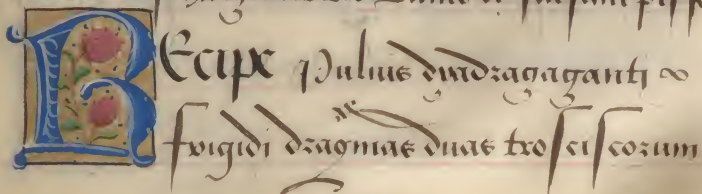 Recipe Puluis dyadragaganti
frigidi dragmas duas trosciscorum